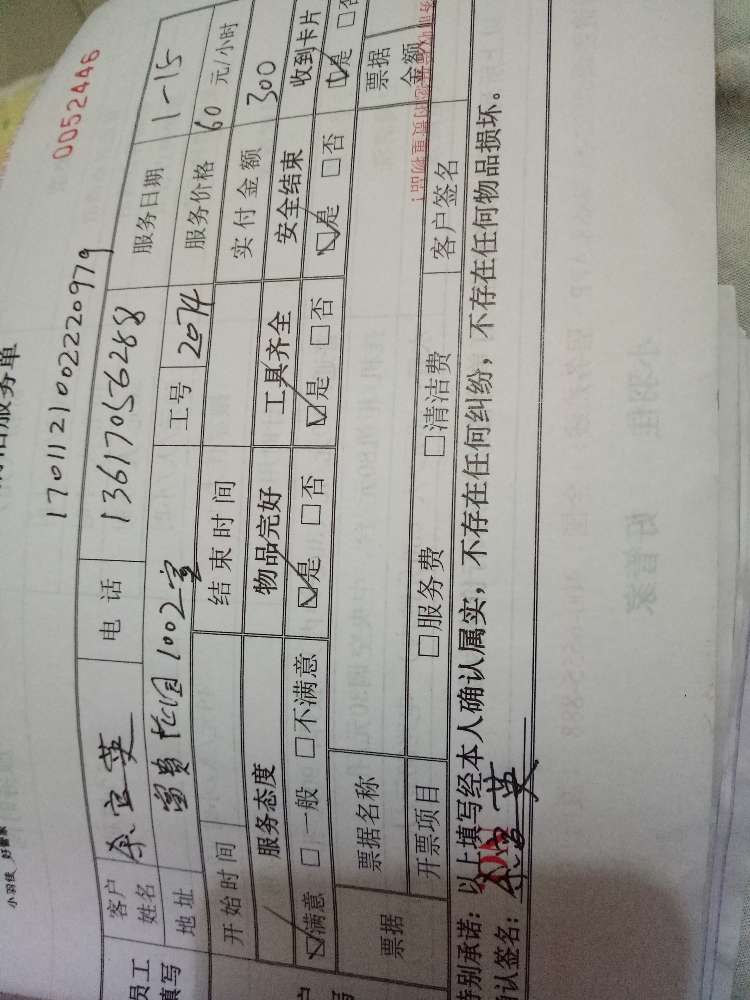 小羽佳 好管家
洁服务单
0052446
17011210022220979
员工
填写
客户
姓名
宜英
电话
13617056288
服务日期
1-15
地址
富贵花园1002室
工号
2074
服务价格
60 元/小时
开始时间
结束时间
实付金额
300
服务态度
物品完好
工具齐全
安全结束
收到卡片
☑满意 □一般 □不满意
☑是 □否
☑是 □否
☑是 □否
☑是 □否
票据
票据名称
票据
金额
开票项目
□服务费 □清洁费
客户签名
特别承诺：以上填写经本人确认属实，不存在任何纠纷，不存在任何物品损坏。
确认签名：
宜英